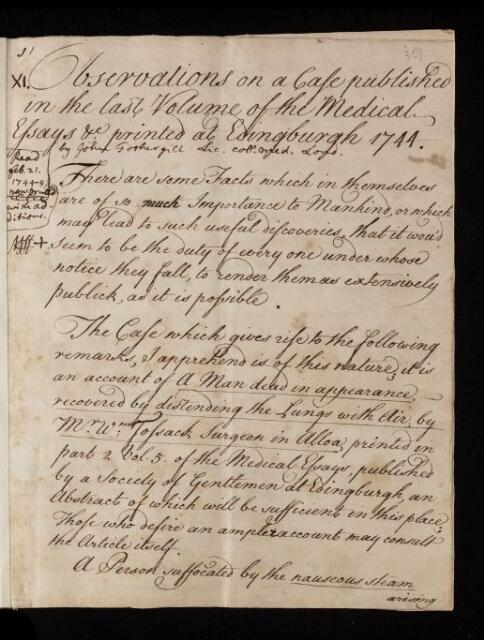 XI. Observations on a Case published
in the last Volume of the Medical
Essays &c printed at Edingburgh 1744.
by John Fothergill Lic. coll. med. Lond.
Read
feb. 21.
1744-5
with ad
ditions.
There are some Facts which in themselves
are of so much Importance to Mankind, or which
may lead to such useful discoveries, that it wou'd
seem to be the duty of every one under whose
notice they fall, to render them as extensively
publick, as it is possible.
The Case which gives rise to the following
remarks, I apprehend is of this nature; it is
an account of A Man dead in appearance,
recovered by distending the Lungs with Air, by
Mr. Wm. Tossack, Surgeon in Alloa, printed in
part 2. Vol. 5. of the Medical Essays, published
by a Society of Gentlemen at Edingburgh, an
Abstract of which will be sufficient in this place;
Those who desire an ampler account may consult
the Article itself.
A Person suffocated by the nauseous steam
arising